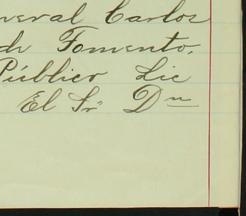 neral Carlos
de Fomento,
Público Lic
El Sr Dn